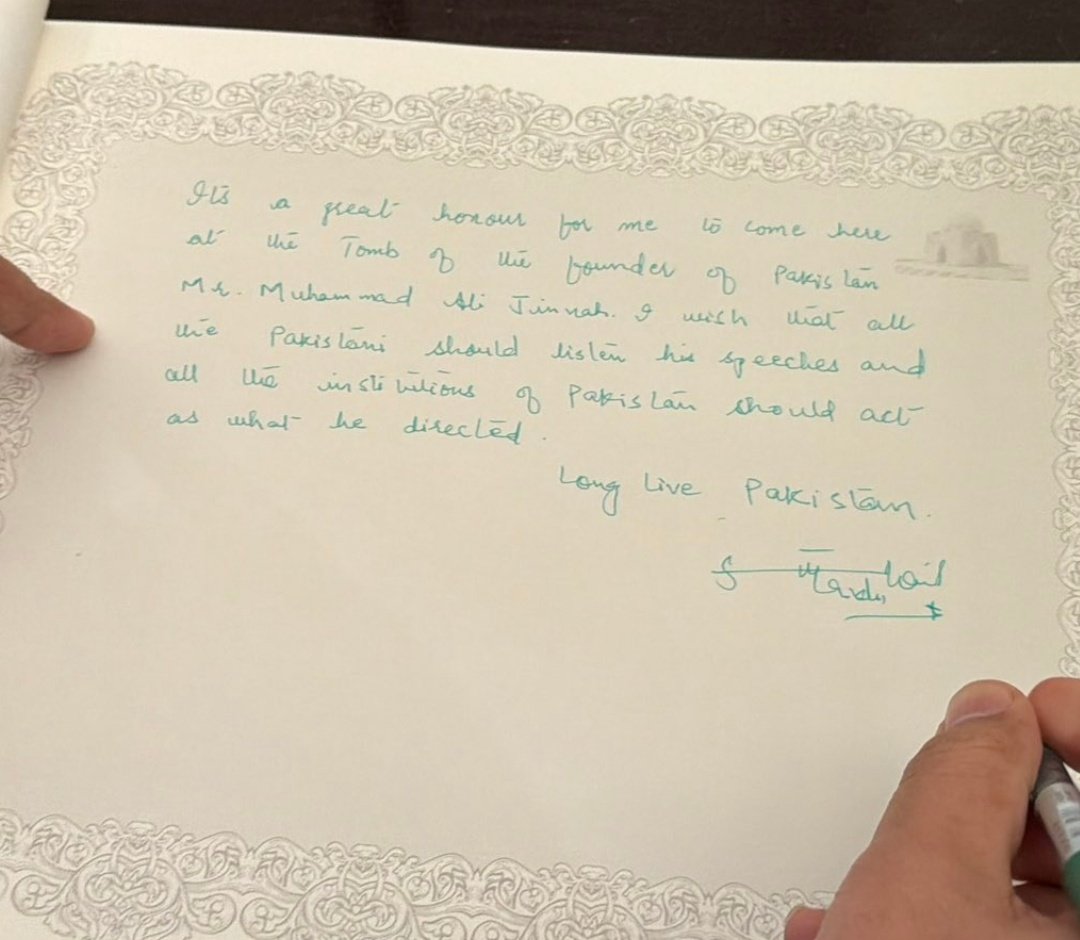 Its a great honour for me to come here
at the Tomb of the founder of Pakistan
Mr. Muhammad Ali Jinnah. I wish that all
the Pakistani should listen his speeches and
all the institutions of Pakistan should act
as what he directed.
Long Live Pakistan.